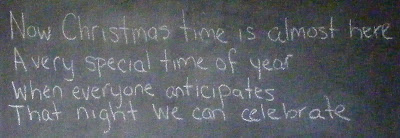 Now Christmas time is almost here
A very special time of year
When everyone anticipates
That night we can celebrate